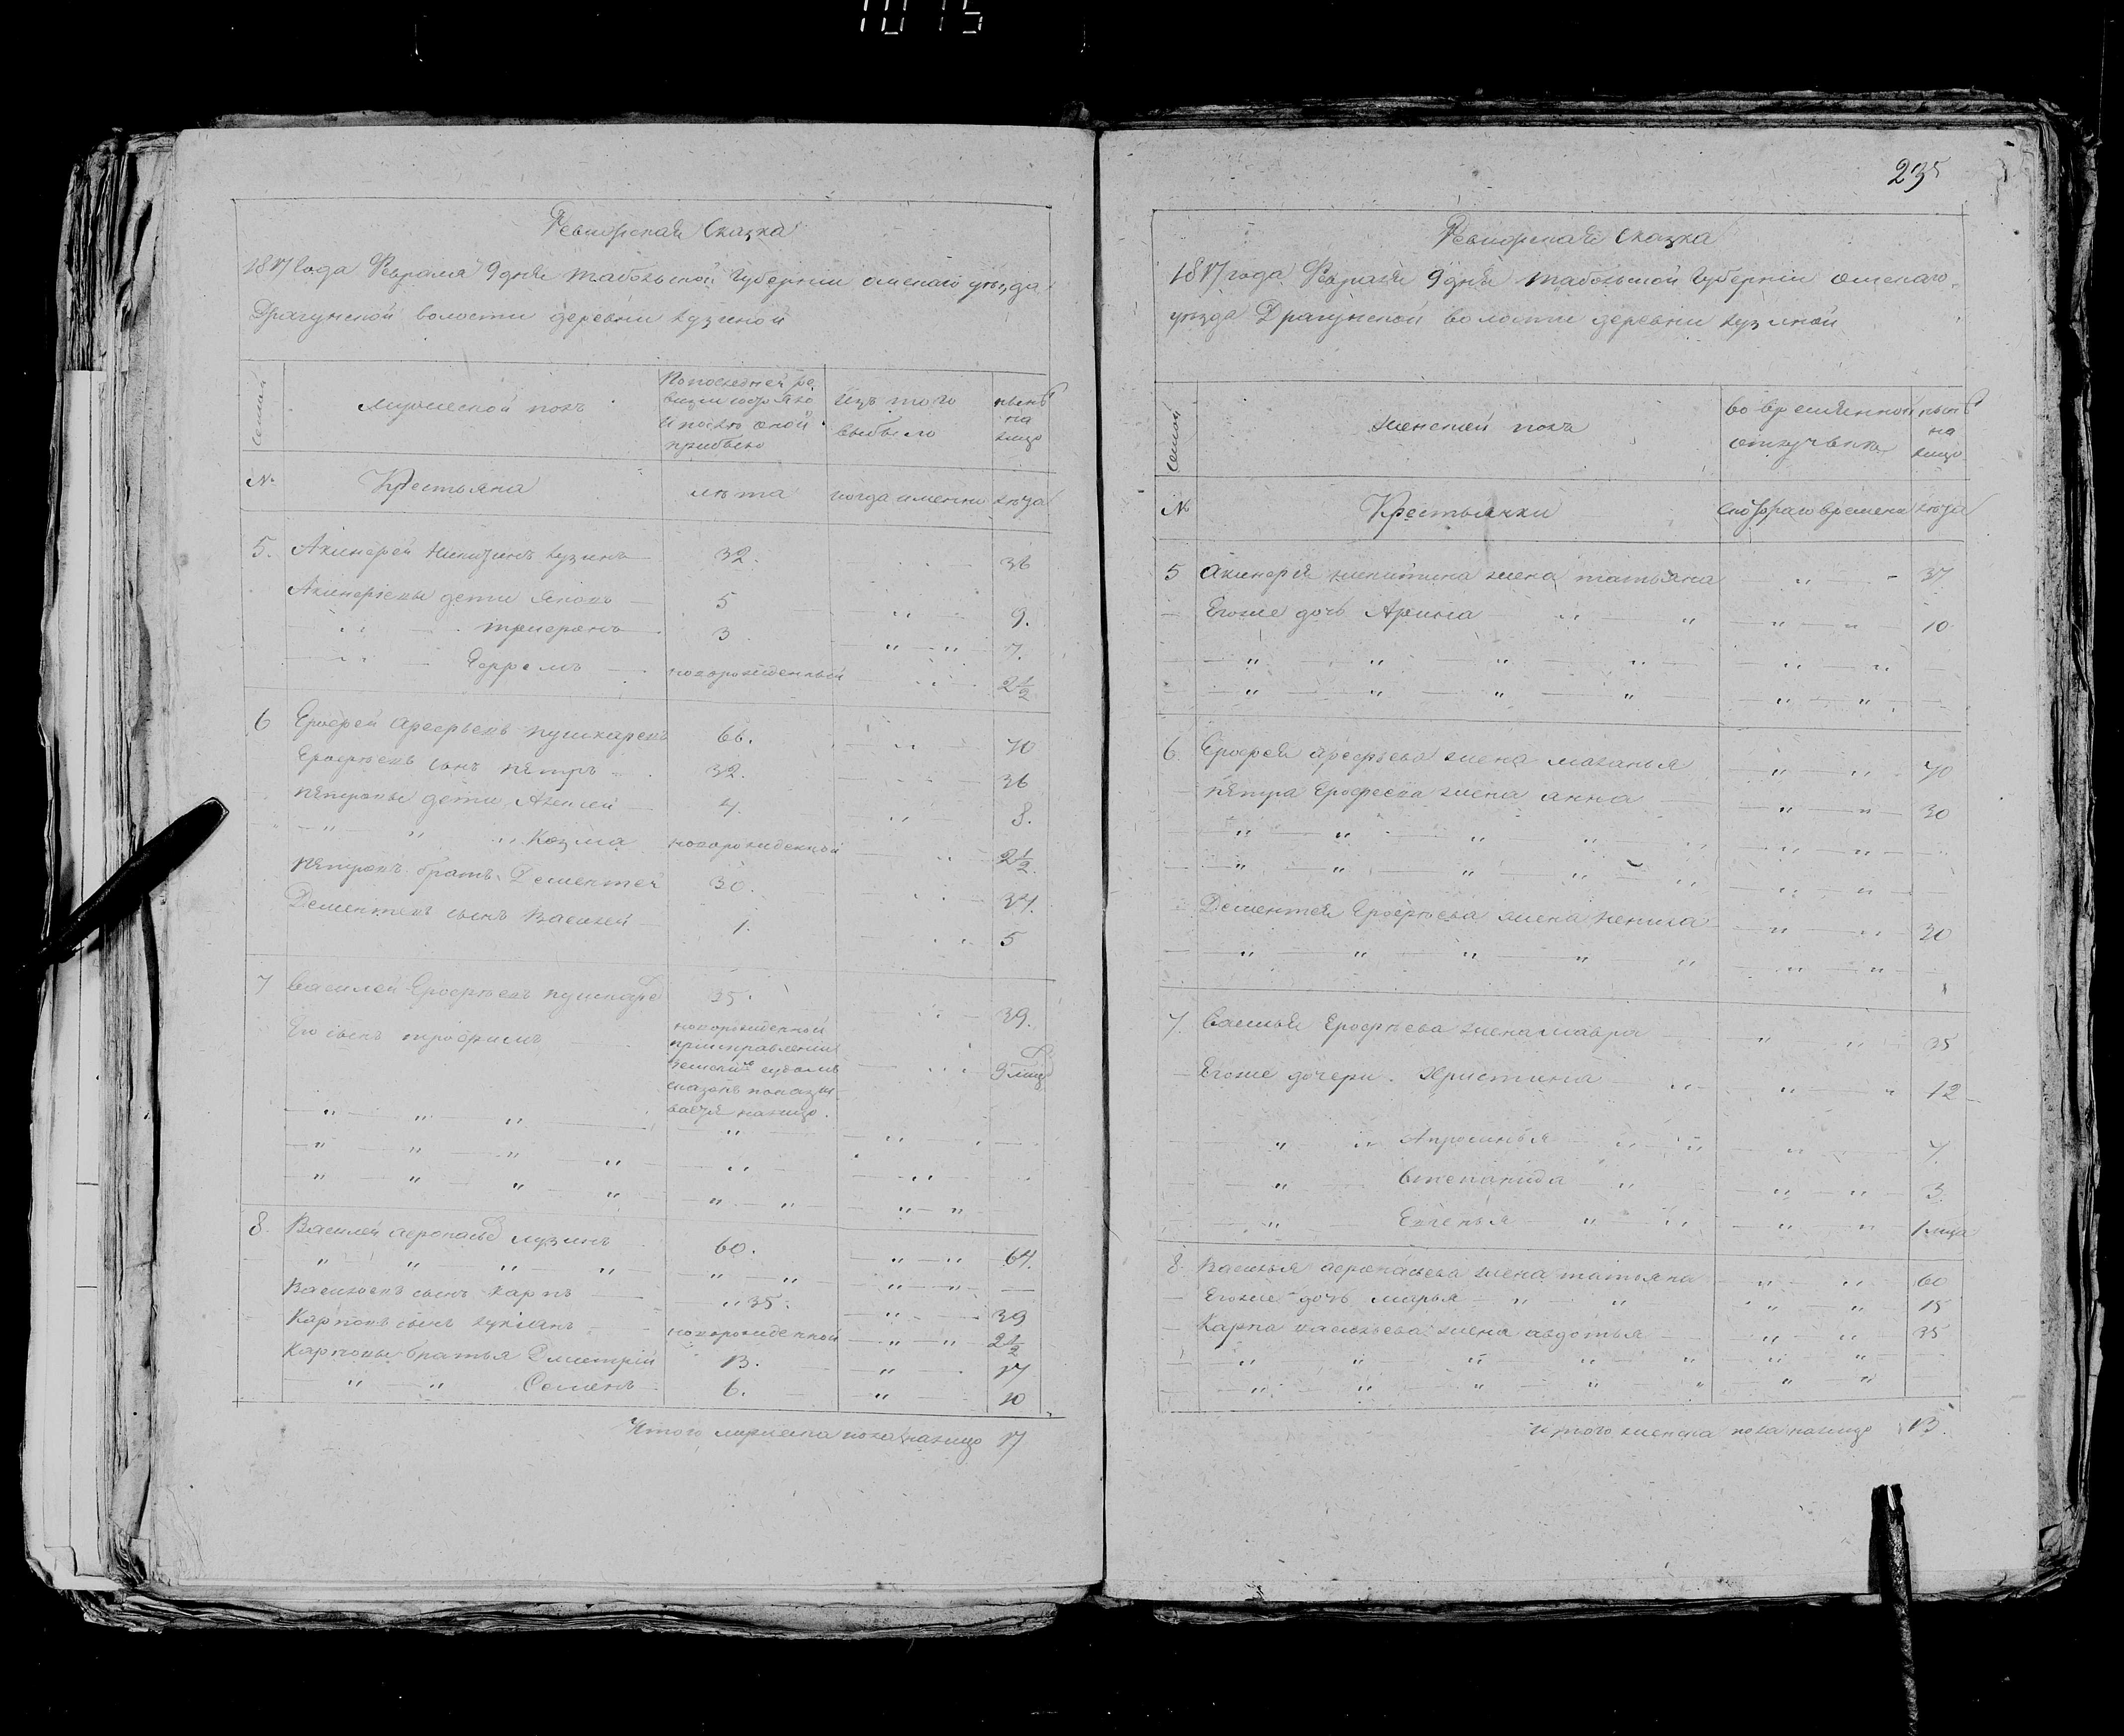 1015
Ревижская Сказка
1817 года Февраля 9 дня табольской губернии омскаго уъзда
Драгунской волости деревни Лузиной
Семьи
Мужеской полъ
По последней ре
визии состояло
и после оной
прибыло
изъ того
выбыло
нынѣ
на
лицо
№
Крестьяна
лѣта
когда именно
лѣта
5. Алексѣй Никитинъ Лузинъ 32. 36
Алексѣевы дети Яковъ 5 9.
" Трифонъ 3 " " 7.
" Ефремъ новорожденный 2 1/2
6 Ерофей Арефьевъ пушкаревъ 66. 70
Ерофѣевъ сынъ пётръ 32. 36
пётровы дети Алексей 4. 8.
" " " Козма новорожденной 2 1/2
пётровъ братъ Дементей 30. 34.
Дементьевъ сынъ Василей 1. 5
7 Василей Ерофѣевъ пушкаре 35. 39.
Его сынъ трофимъ
новорожденной
при исправлении
земскимъ судомъ
сказокъ показы
вается налицо.
9 мец
8. Василей Лузинъ 60. " " 64.
" " " " " " " "
Васильевъ сынъ Карпъ " 35. " 39
Карповъ сынъ лукіянъ новорожденной " " 2 1/2
Карповы братья Дмитрій 13. " 17
" " Семенъ 6. " 10
Итого мужеска пола налицо 17
235
Ревижская Сказка
1817 года Февраля 9 дня табольской губерніи омскаго
уѣзда Драгунской волости деревни Лузиной
Семьи
Женской полъ
во временной
отлучьке
нынѣ
на
лицо
№
Крестьянки
съ котораго времени
лѣта
5 Алексѣя никитина жена татьяна " - 37
Егоже дочь Арина " " " " 10
6. Ерофея Арефьева жена маланья " " 70
пётра Ерофеева жена анна " " 30
Дементея Ерофѣева жена " " 30
7. Василья Ерофѣева жена мавра " " 35
Егоже дочери Христина " " " 12
" " Апросинья " " " 7.
" Степанида " " " 3.
" Евгенья " " " " 1 меца
8. Василья жена татьяна " " 60
Егоже дочь марья " " " " 15
Карпа васильева жена авдотья " " 35
Итого женска пола налицо 13.